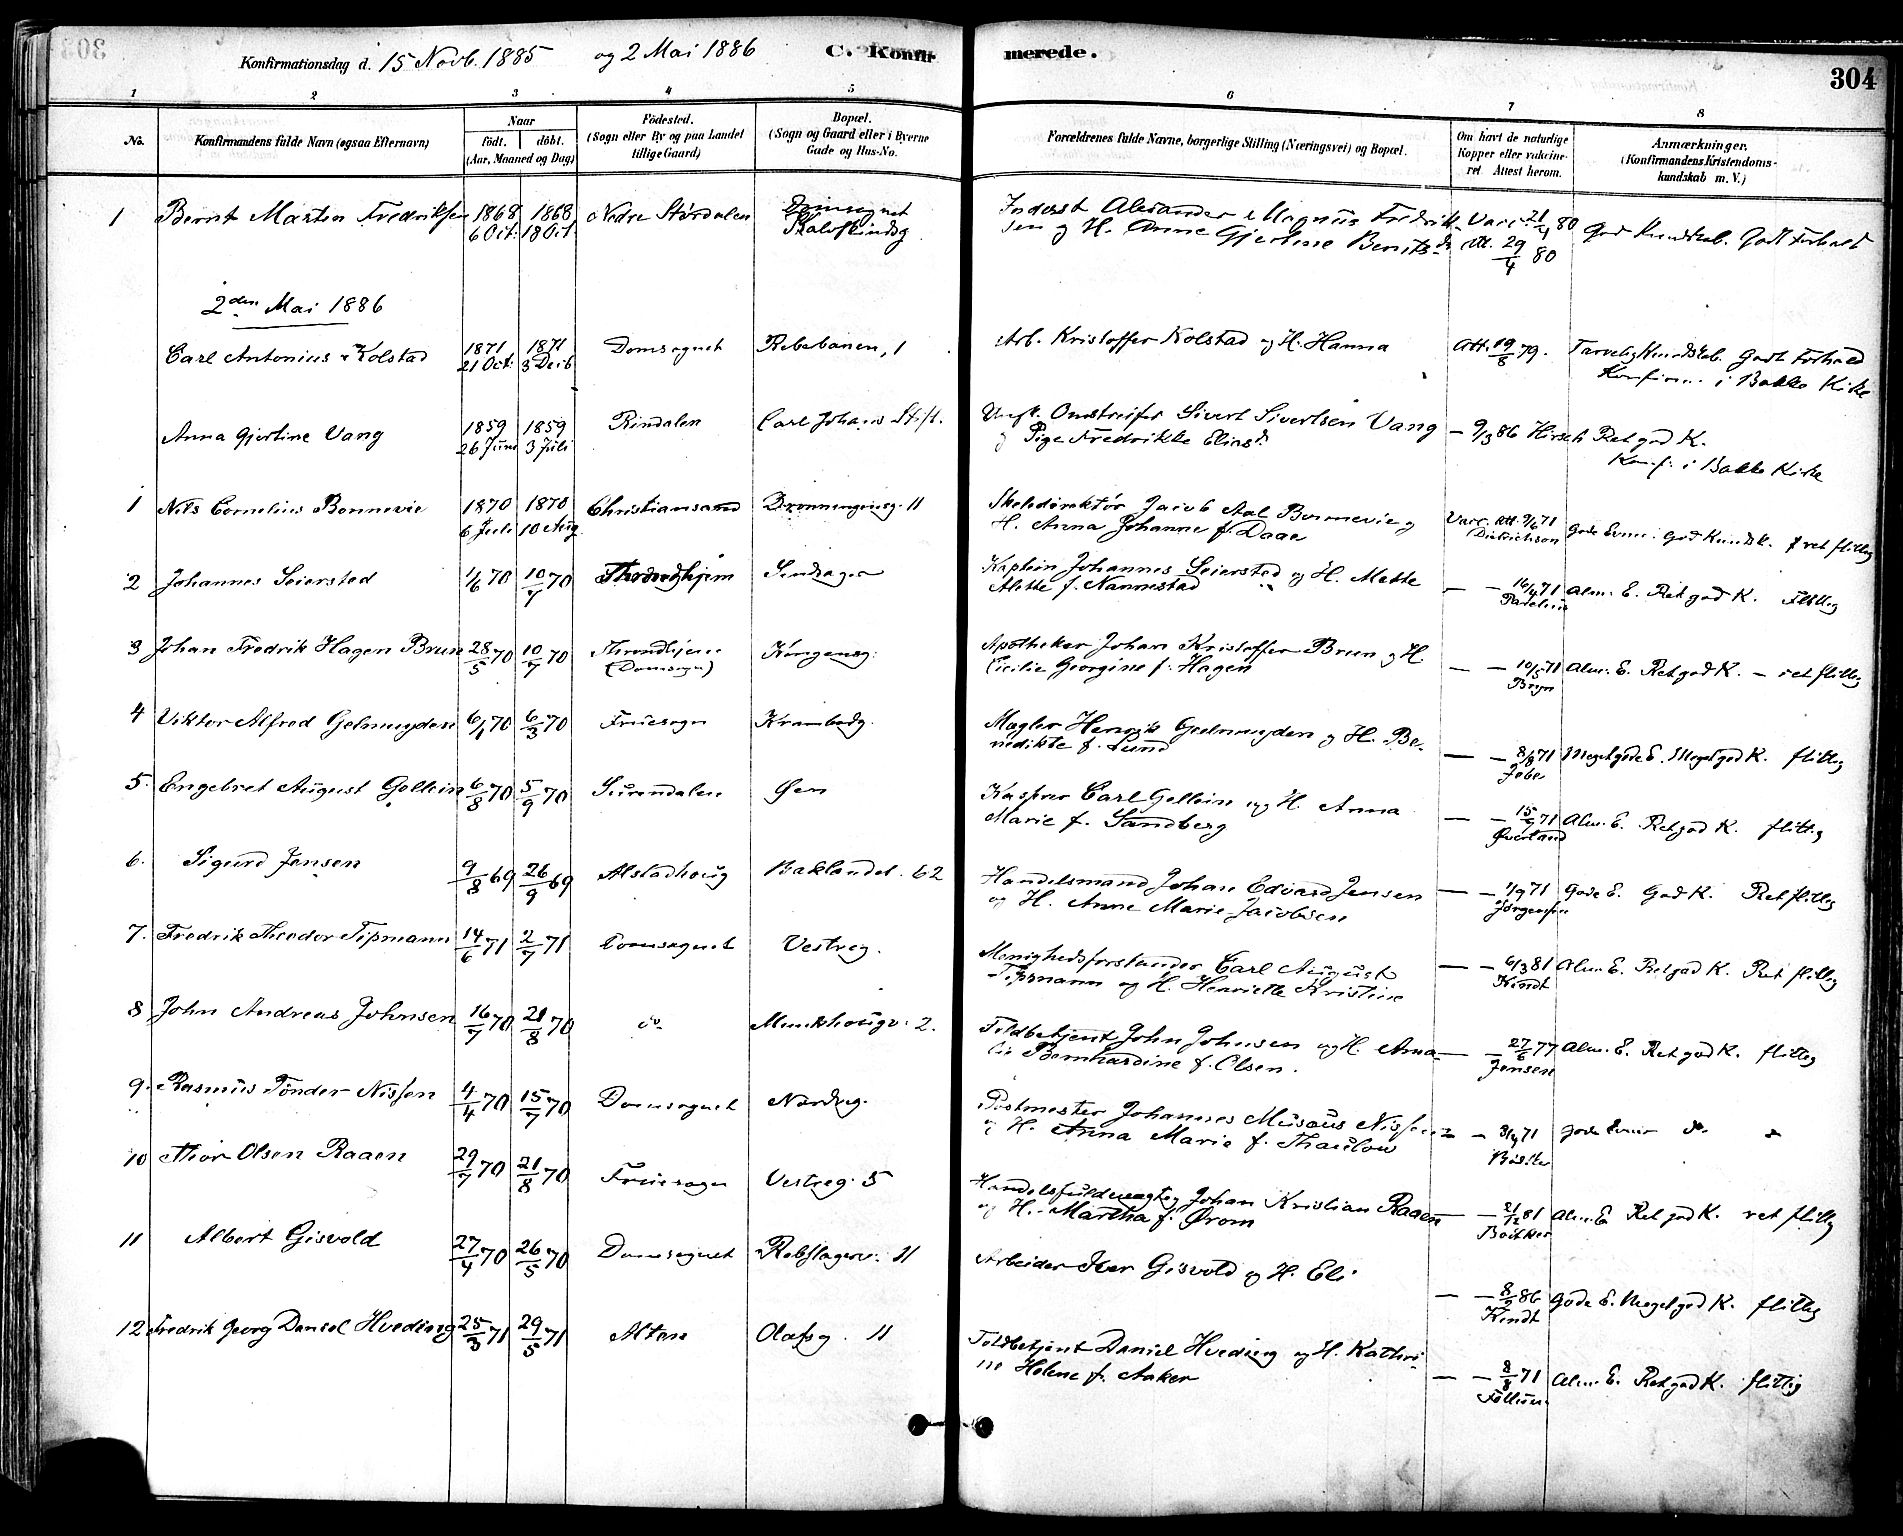 Konfirmationsdag d. 15 Novb. 1885 og 2 Mai 1886 C. Konfirmerede. 304
1 2 3 4 5 6 7 8
No. Konfirmandens fulde Navn (ogsaa Efternavn) Naar født. døbt. (Aar, Maaned og Dag) Fødested. (Sogn eller By og paa Landet tillige Gaard) Bopæl. (Sogn og Gaard eller i Byerne Gade og Hus-No. Forældrenes fulde Navne, borgerlige Stilling (Næringsvei) og Bopæl. Om havt de naturlige Kopper eller vakcineret. Attest herom. Anmærkninger. (Konfirmandens Kristendomskundskab m. V.)
1 Bernt Martin Fredriksen 1868 1868 Nedre Størdalen Domsognet Inderst Alexander Magnus Fredrik- Vacc. 21/4 80 God Kundskab. Godt Forhold
6 Oct. 18 Oct. sen og H. Anne Gjertine Berntsdr Att. 29/4 80
2den Mai 1886
Carl Antonius Kolstad 1871 1871 Domsognet Rebebanen, 1 Arb. Kristoffer Kolstad og H. Hanna Att. 19/8 79. Tarvelig Kundskab. Godt Forhold
21 Oct. 3 Decb Konfirm. i Bakke Kirke
Anna Gjertine Vang 1859 1859 Rindalen Carl Johans Stift. Ungk. Omstreifer Sivert Sivertsen Vang – 9/3 86 Hirsch Ret god K.
26 Juni 3 Juli og Pige Fredrikke Eliasd. Konf. i Bakke Kirke
1 Nils Cornelius Bonnevie 1870 1870 Christiansand Dronningensg. 11 Skoledirektør Jacob Aal Bonnevie og Vacc. Att. 9/6 71 Gode Evner. God Kundsk. ret flittig
6 Juli 10 Aug. H. Anna Johanne f. Daae Didrichson
2 Johannes Seiersted 1/6 70 10/7 70 Throndhjem Kaptein Johannes Seiersted og H. Mette – – 16/4 71 Alm. E. Ret god K. Flittig
Alette f. Nannestad
3 Johan Fredrik Hagen Brun 28/5 70 10/7 70 Throndhjem Kongensg. Apotheker Johan Kristoffer Brun og H. – – 10/5 71 Alm. E. Ret god K. – ret flittig
(Domsogn) Cicilie Georgine f. Hagen Bryn
4 Viktor Alfred Gelmuyden 6/1 70 6/3 70 Fruesogn Krambodg. Mægler Henrik Gjelmuyden og H. Be- – – 8/8 71 Meget gode E. Meget god K. flittig
nedikte f. Lund
5. Engebret August Gellein 6/8 70 5/9 70 Surendalen Øen Kasserer Carl Gellein og H. Anna – – 15/9 71 Alm. E. Ret god K. flittig
Marie f. Sandberg Øverland
6. Sigurd Jensen 9/8 69 26/9 69 Alstadhoug Baklandet. 62 Handelsmand Johan Edvard Jensen – – 1/9 71 Gode E. God K. Ret flittig
og H. Anne Marie Jacobsen Jørgensen
7. Fredrik Theodor Tipmann 14/6 71 2/7 71 Domsognet Vestreg. Menighedsforstander Carl August – – 6/3 81 Alm. E. Ret god K. Ret flittig
Tipmann og H. Henriette Kristine Kindt
8 John Andreas Johnsen 16/7 70 21/8 70 do Munkhougv. 2. Toldbetjent John Johnsen og H. Ama- – – 27/6 77 Alm. E. Ret god K. flittig
lie Bernhardine f. Olsen. Jensen
9. Rasmus Tønder Nissen 4/4 70 15/7 70 Domsognet Nordreg. Postmester Johannes Musæus Nissen – – 3/9 71 gode Evner do
og H. Anna Marie f. Thaulow
10 Thor Olsen Raaen 29/7 70 21/8 70 Fruesogn Vestreg. 5 Handelsfuldmægtig Johan Kristian Raaen – – 21/12 81 Alm. E Ret god K. ret flittig
og H. Martha f. Ørom
11 Albert Gisvold 27/4 70 26/5 70 Domsognet Rebslagerv. 11 Arbeider Iver Gisvold og H. Eli – – 8/2 86 Gode E. Meget god K. flittig
Kindt
12 Fredrik Georg Daniel Hveding 25/3 71 29/5 71 Alten Olafsg. 11 Toldbetjent Daniel Hveding og H. Kathri- – – 8/8 71 Alm. E. Ret god K. flittig
ne Helene f. Aaker